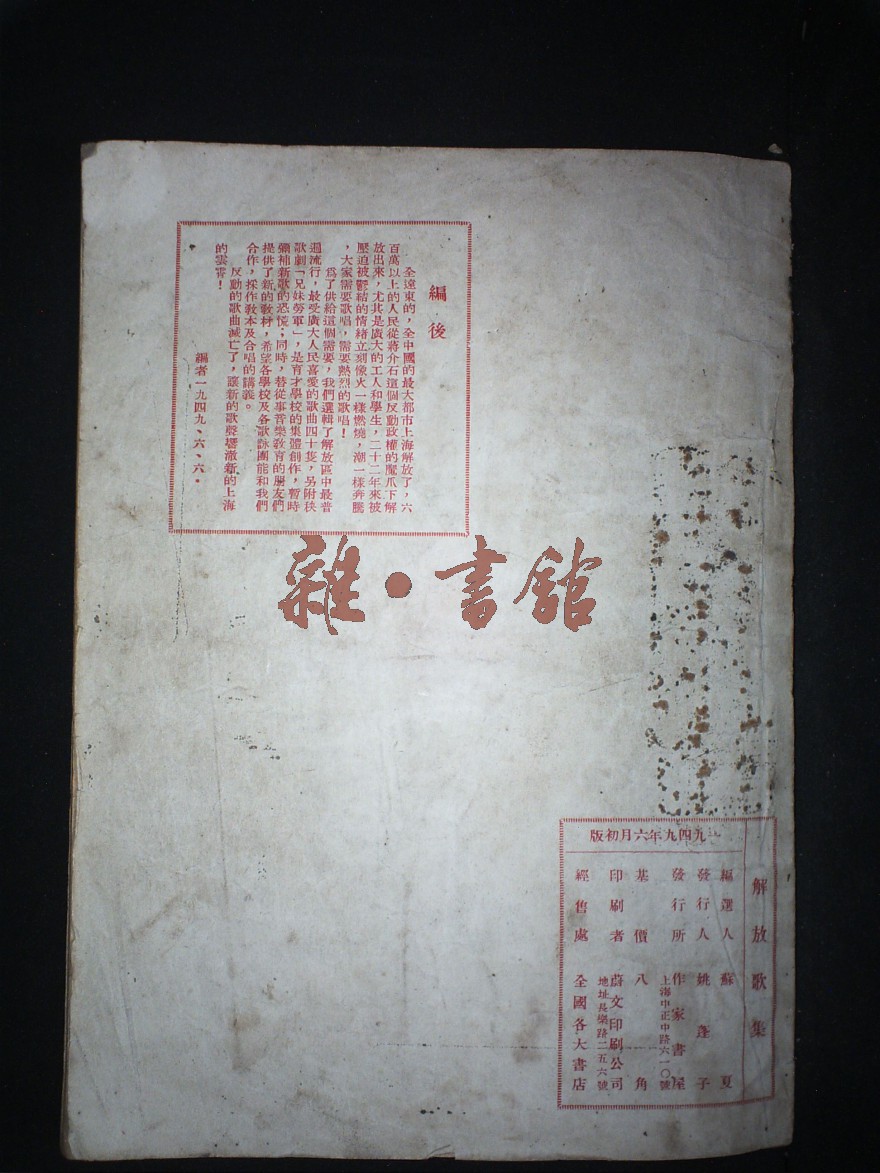 編後
全遠東的，全中國的最大都市上海解放了，六
百萬以上的人民從蔣介石這個反動政權的魔爪下解
放出來，尤其是廣大的工人和學生，二十二年來被
壓迫被鬱結的情緒立刻像火一樣燃燒，潮一樣奔騰
，大家需要歌唱，需要熱烈的歌唱！
爲了供給這個需要，我們選輯了解放區中最普
遍流行，最受廣大人民喜愛的歌曲四十隻，另附秧
歌劇「兄妹勞軍」，是育才學校的集體創作，暫時
彌補新歌的恐慌。同時，替從事音樂敎育的朋友們
提供了新的敎材，希望各學校及各歌詠團能和我們
合作，採作敎本及合唱的講義。
反動的歌曲滅亡了，讓新的歌聲響澈新的上海
的雲霄！
編者一九四九、六、六。
雜·書舘
解放歌集
一九四九年六月初版
編選人 蘇夏
發行人 姚蓬子
發行所 作家書屋
上海中正中路六一〇號
基價 八角
印刷者 蔚文印刷公司
地址長樂路二五六號
經售處 全國各大書店